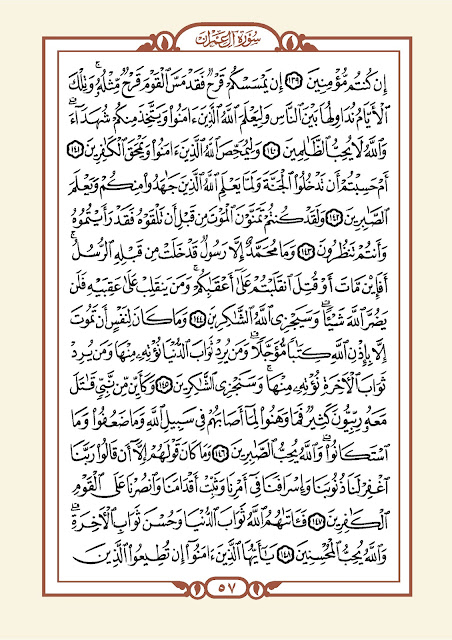 سُورَةُ آلِ عِمْرَان
إِن كُنتُم مُّؤْمِنِينَ ١٣٩ إِن يَمْسَسْكُمْ قَرْحٌ فَقَدْ مَسَّ ٱلْقَوْمَ قَرْحٌ مِّثْلُهُۥ ۚ وَتِلْكَ
ٱلْأَيَّامُ نُدَاوِلُهَا بَيْنَ ٱلنَّاسِ وَلِيَعْلَمَ ٱللَّهُ ٱلَّذِينَ ءَامَنُوا۟ وَيَتَّخِذَ مِنكُمْ شُهَدَآءَ ۗ
وَٱللَّهُ لَا يُحِبُّ ٱلظَّـٰلِمِينَ ١٤٠ وَلِيُمَحِّصَ ٱللَّهُ ٱلَّذِينَ ءَامَنُوا۟ وَيَمْحَقَ ٱلْكَـٰفِرِينَ ١٤١
أَمْ حَسِبْتُمْ أَن تَدْخُلُوا۟ ٱلْجَنَّةَ وَلَمَّا يَعْلَمِ ٱللَّهُ ٱلَّذِينَ جَـٰهَدُوا۟ مِنكُمْ وَيَعْلَمَ
ٱلصَّـٰبِرِينَ ١٤٢ وَلَقَدْ كُنتُمْ تَمَنَّوْنَ ٱلْمَوْتَ مِن قَبْلِ أَن تَلْقَوْهُ فَقَدْ رَأَيْتُمُوهُ
وَأَنتُمْ تَنظُرُونَ ١٤٣ وَمَا مُحَمَّدٌ إِلَّا رَسُولٌ قَدْ خَلَتْ مِن قَبْلِهِ ٱلرُّسُلُ ۚ
أَفَإِي۟ن مَّاتَ أَوْ قُتِلَ ٱنقَلَبْتُمْ عَلَىٰٓ أَعْقَـٰبِكُمْ ۚ وَمَن يَنقَلِبْ عَلَىٰ عَقِبَيْهِ فَلَن
يَضُرَّ ٱللَّهَ شَيْـًٔا ۗ وَسَيَجْزِى ٱللَّهُ ٱلشَّـٰكِرِينَ ١٤٤ وَمَا كَانَ لِنَفْسٍ أَن تَمُوتَ
إِلَّا بِإِذْنِ ٱللَّهِ كِتَـٰبًا مُّؤَجَّلًا ۗ وَمَن يُرِدْ ثَوَابَ ٱلدُّنْيَا نُؤْتِهِۦ مِنْهَا وَمَن يُرِدْ
ثَوَابَ ٱلْـَٔاخِرَةِ نُؤْتِهِۦ مِنْهَا ۚ وَسَنَجْزِى ٱلشَّـٰكِرِينَ ١٤٥ وَكَأَيِّن مِّن نَّبِىٍّ قَـٰتَلَ
مَعَهُۥ رِبِّيُّونَ كَثِيرٌ فَمَا وَهَنُوا۟ لِمَآ أَصَابَهُمْ فِى سَبِيلِ ٱللَّهِ وَمَا ضَعُفُوا۟ وَمَا
ٱسْتَكَانُوا۟ ۗ وَٱللَّهُ يُحِبُّ ٱلصَّـٰبِرِينَ ١٤٦ وَمَا كَانَ قَوْلَهُمْ إِلَّآ أَن قَالُوا۟ رَبَّنَا
ٱغْفِرْ لَنَا ذُنُوبَنَا وَإِسْرَافَنَا فِىٓ أَمْرِنَا وَثَبِّتْ أَقْدَامَنَا وَٱنصُرْنَا عَلَى ٱلْقَوْمِ
ٱلْكَـٰفِرِينَ ١٤٧ فَـَٔاتَىٰهُمُ ٱللَّهُ ثَوَابَ ٱلدُّنْيَا وَحُسْنَ ثَوَابِ ٱلْـَٔاخِرَةِ ۗ
وَٱللَّهُ يُحِبُّ ٱلْمُحْسِنِينَ ١٤٨ يَـٰٓأَيُّهَا ٱلَّذِينَ ءَامَنُوٓا۟ إِن تُطِيعُوا۟ ٱلَّذِينَ
٥٧